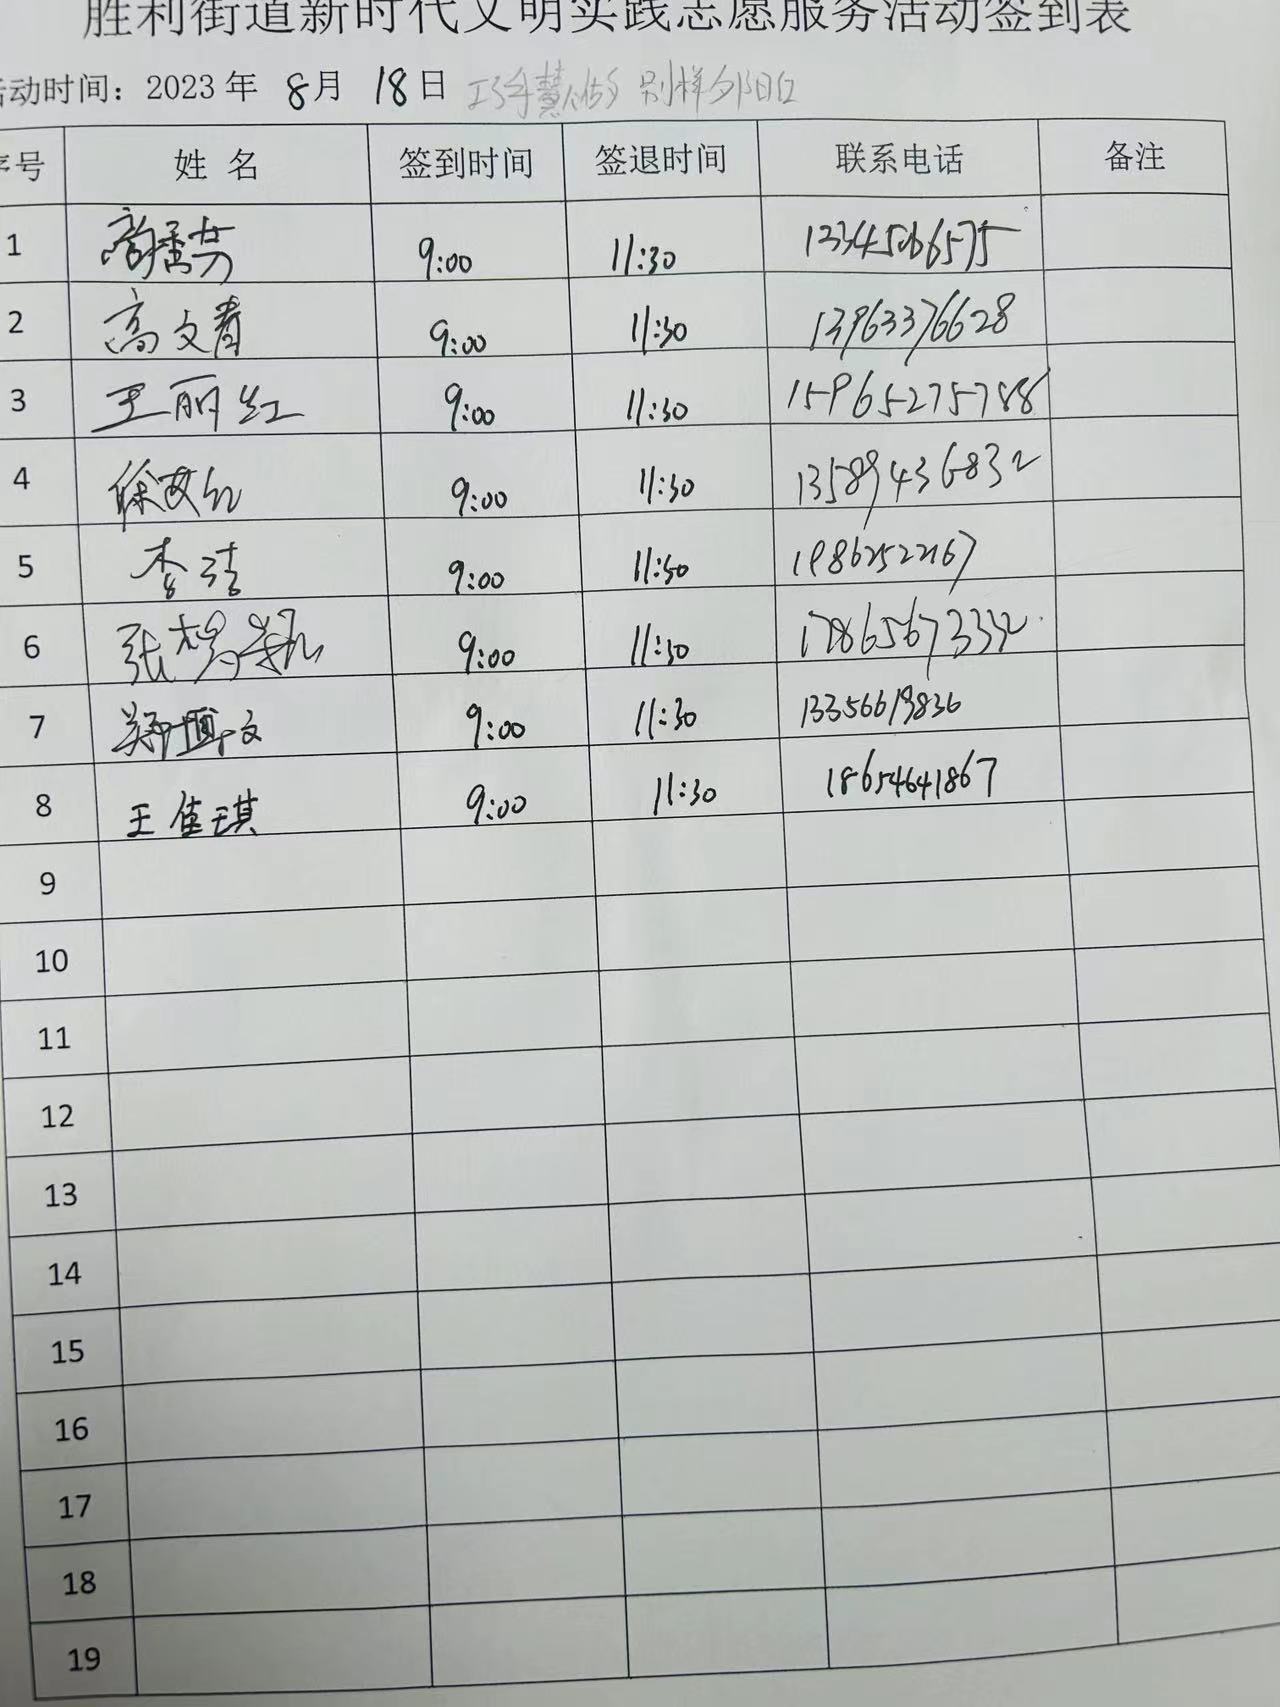 胜利街道新时代文明实践志愿服务活动签到表
活动时间：2023年 8月 18日
序号 姓 名 签到时间 签退时间 联系电话 备注
1 9:00 11:30
2 高文青 9:00 11:30 13963376628
3 王丽红 9:00 11:30 15965275788
4 徐 9:00 11:30 13589436832
5 李洁 9:00 11:30 19862522167
6 张 9:00 11:30 17865673332
7 文 9:00 11:30 13356619836
8 王佳琪 9:00 11:30 18654641867
9
10
11
12
13
14
15
16
17
18
19